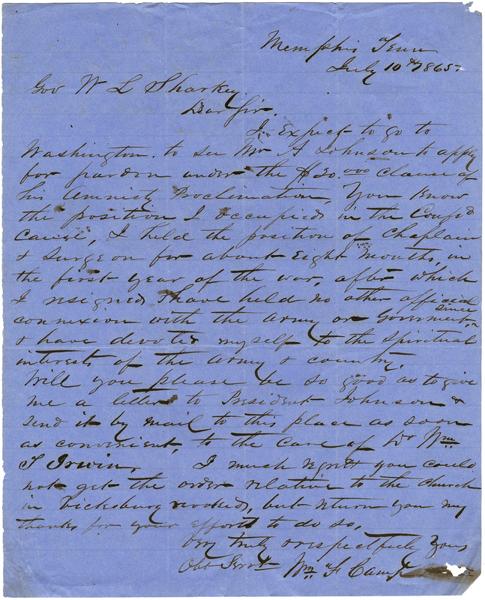 Memphis Tenn
July 10th 1865
Gov W L Sharkey
Dear Sir,
I expect to go to
Washington to see Mr A Johnson to apply
for pardon under the $20.000 clause of
his Amnesty Proclamation, You Know
the position I occupied in the Confd
Cause, I held the position of Chaplain
& Surgeon for about Eight Months, in
the first year of the war, after which
I resigned & have held no other official
connexion with the Army or Goverment, since
& have devoted myself to the Spiritual
interests of the Army & country,
Will you please be so good as to give
me a letter to President Johnson &
send it by mail to this place as soon
as convenient, to the Care of Dr Wm
J Irwin, I much regret you could
not get the order relative to the Church
in Vicksburg revoked, but return you my
thanks for your efforts to do so.
Very truly & respectfully Yours
Obt Servt Wm F Camp